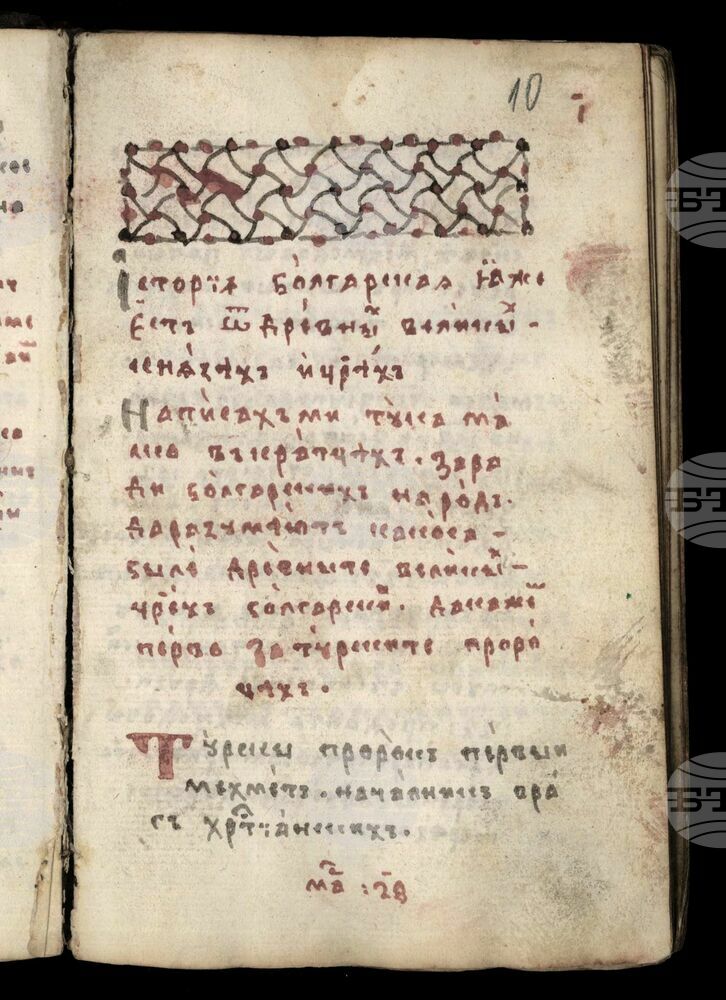 10
Історїѧ болгарская, ꙗже
Естъ ѿ древныⷯ великиⷯ -
кнѧзѣхъ и цр҃ѣхъ
Написахъ ми тука ма
лко въ кратцѣхъ. зара
ди болгарскихъ народъ.
да разумѣютъ како са -
были древните великиⷯ -
цр҃ѣхъ болгарскиⷯ. да кажеⷨ
перво за турските проро
цѣхъ.
Турски пророкъ первыи
мехметъ. началникъ вра
гъ хрⷭ҇тїанскихъ.
БТА
БТА
БТА